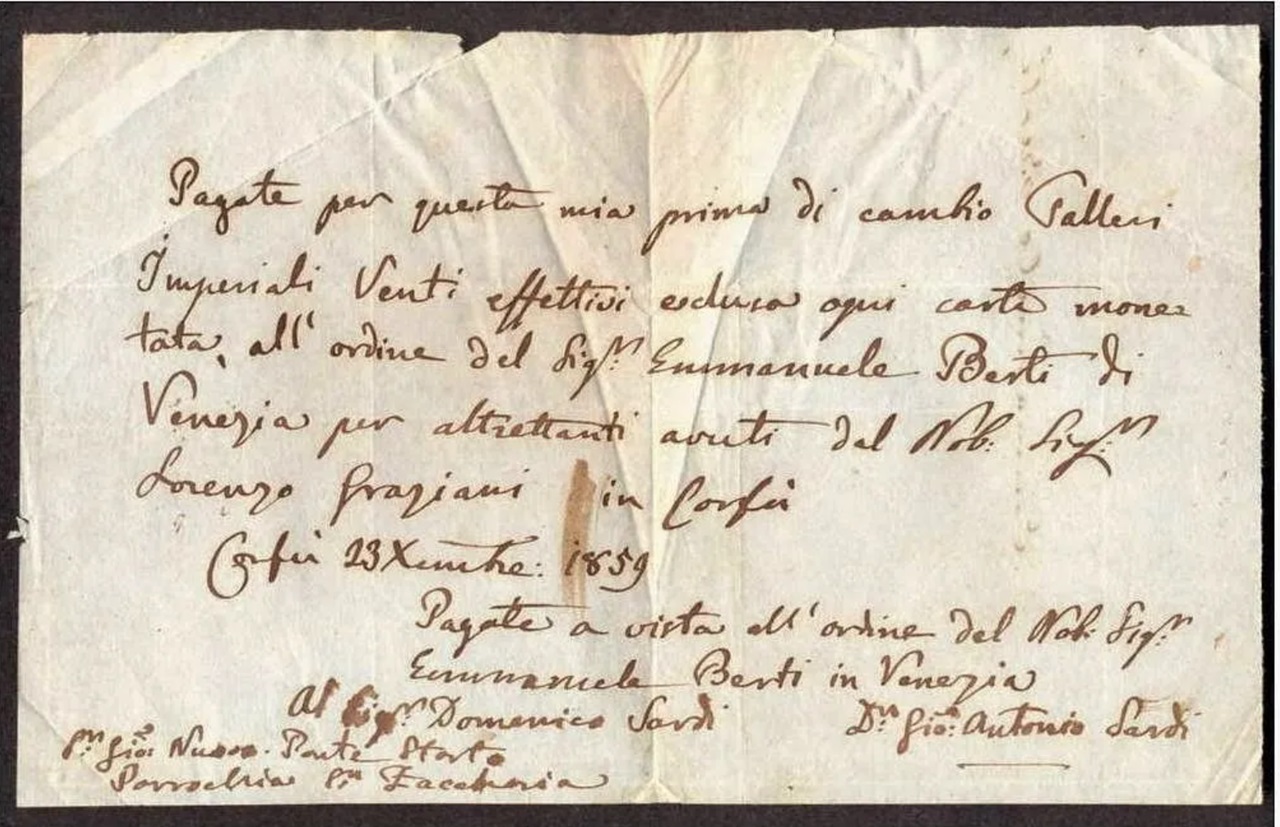 Pagate per questa mia prima di cambio Talleri
Imperiali Venti effettivi esclusa ogni carta mone=
tata, all' ordine del Sigʳ. Emmanuele Berti di
Venezia per altrettanti avuti dal Nob: Sigʳ.
Lorenzo Graziani in Corfù
Corfù 23 Xembre: 1859
Pagate a vista all' ordine del Nob: Sigʳ.
Emmanuele Berti in Venezia
Al Sigʳ. Domenico Sardi
Dʳ. Gioⁿ: Antonio Sardi
Sⁿ Gioⁿ: Nuovo. Ponte Storto
Parrochia Sⁿ Zaccharia